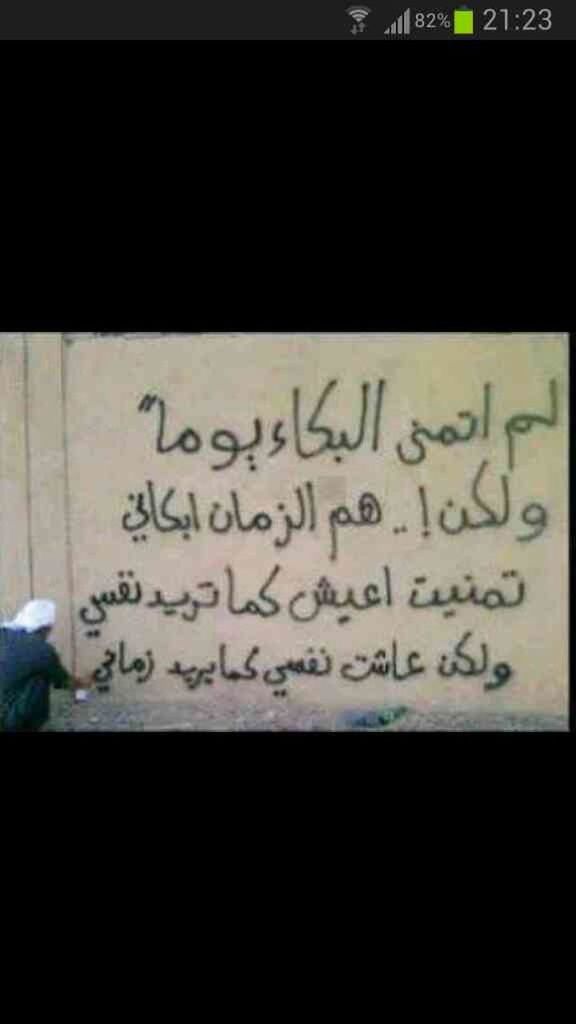 82% 21:23
لم اتمنى البكاء يوماً
ولكن !.. هم الزمان ابكاني
تمنيت اعيش كما تريد نفسي
ولكن عاشت نفسي كما يريد زماني